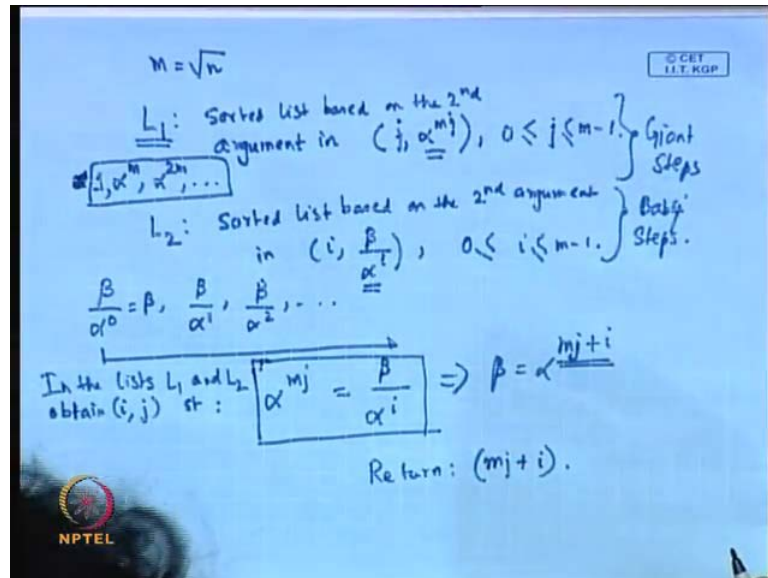 m = √n
© CET
I.I.T. KGP
L₁: Sorted list based on the 2nd
argument in (j, α^mj), 0 ≤ j ≤ m-1. } Giant
Steps
1, α^m, α^2m, ...
L₂: Sorted list based on the 2nd argument
in (i, β/α^i), 0 ≤ i ≤ m-1. } Baby
Steps.
β/α^0 = β, β/α^1, β/α^2, ...
In the lists L₁ and L₂
obtain (i, j) st : α^mj = β/α^i ⇒ β = α^mj+i
Return: (mj + i).
NPTEL